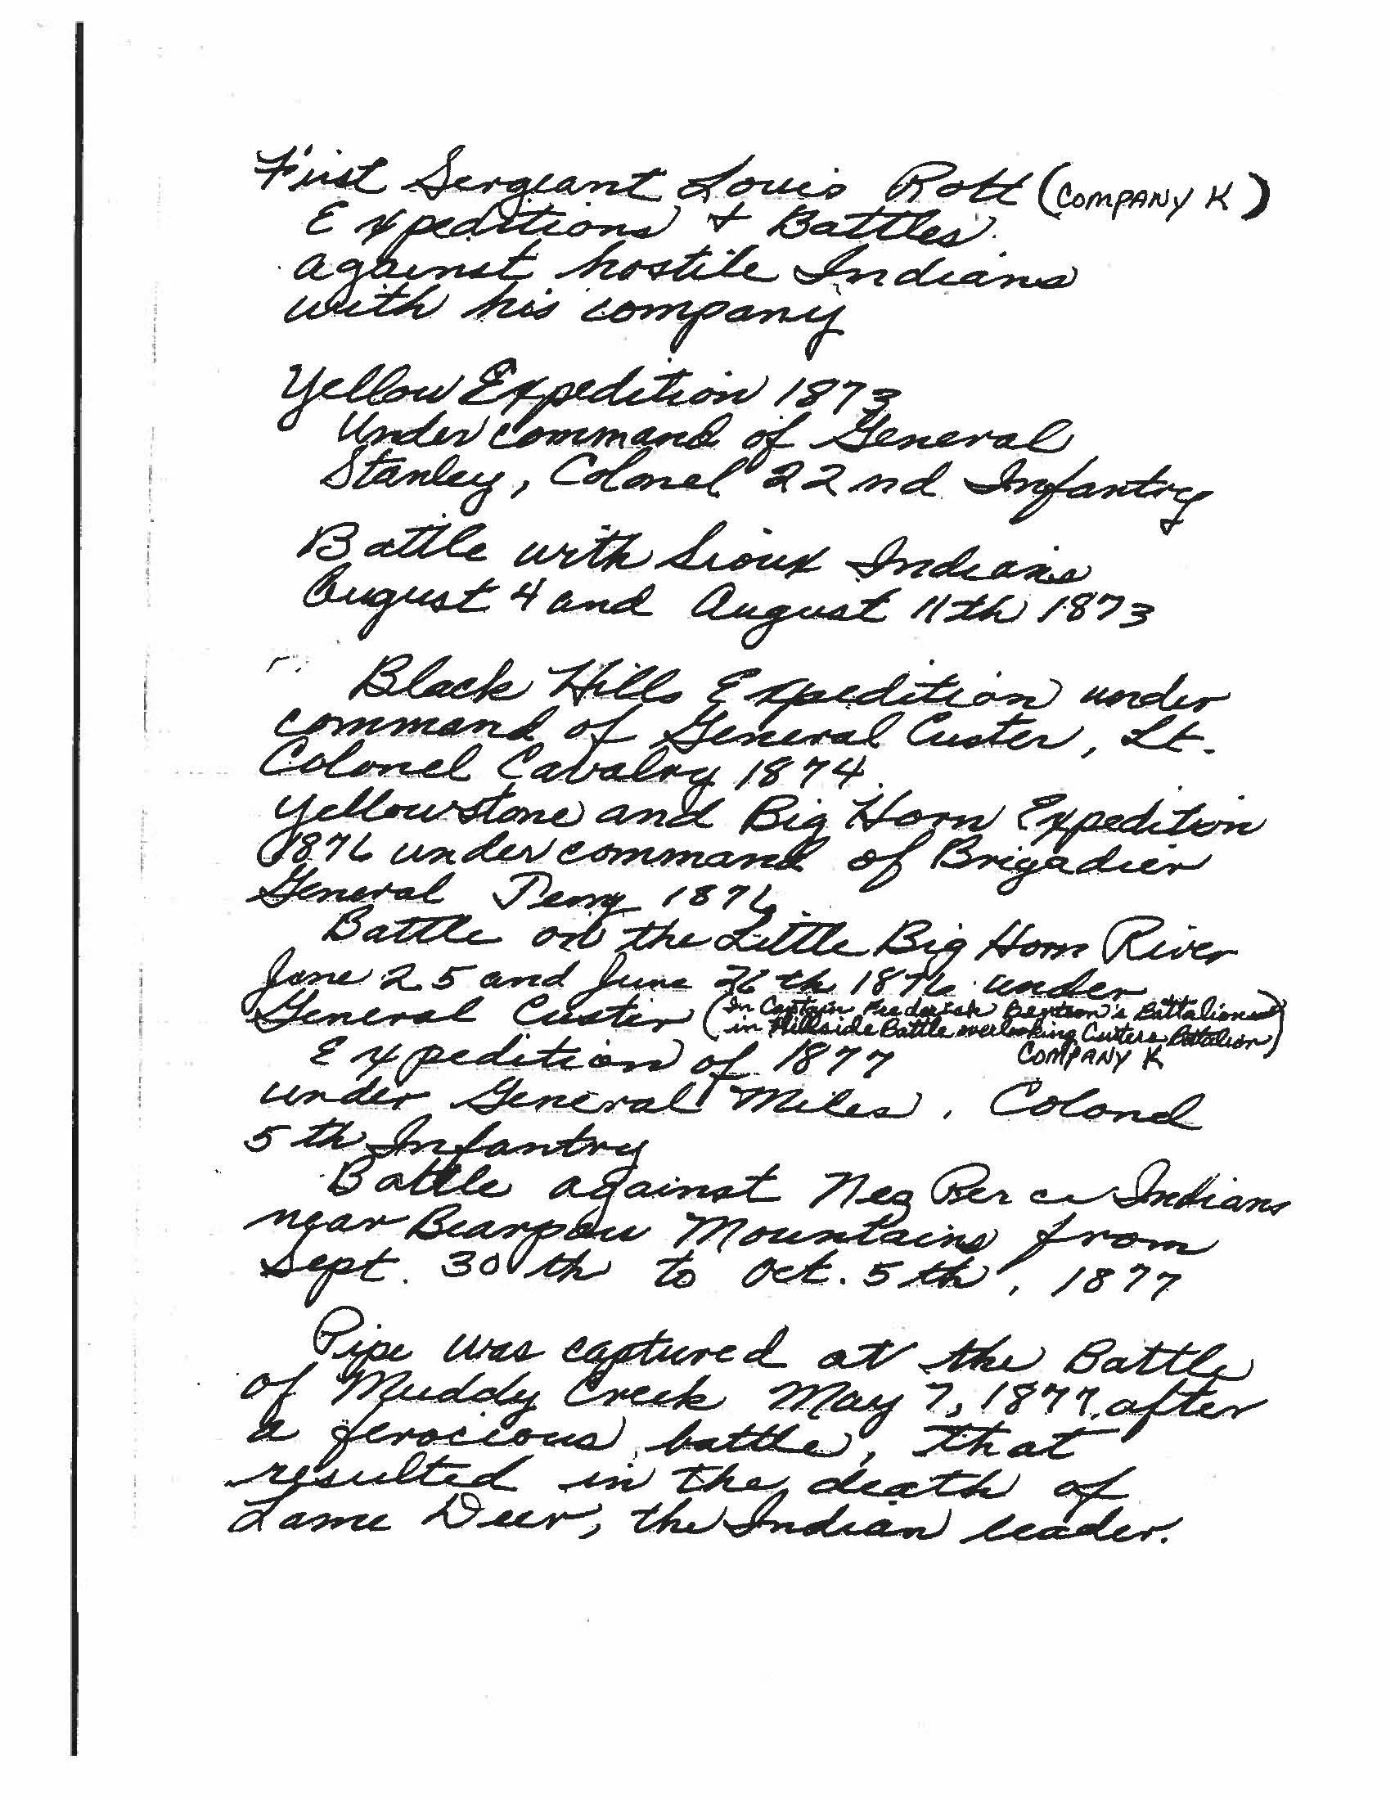 First Sergeant Louis Rott (COMPANY K)
Expeditions & Battles
against hostile Indians
with his company
Yellow Expedition 1873
Under command of General
Stanley, Colonel 22nd Infantry
Battle with Sioux Indians
August 4 and August 11th 1873
Black Hills Expedition under
command of General Custer, Lt.
Colonel Cavalry 1874.
Yellowstone and Big Horn Expedition
1876 under command of Brigadier
General Terry 1876.
Battle on the Little Big Horn River
June 25 and June 26th 1876 under
General Custer (In Captain Frederick Benteen's Battalion
in Hillside Battle overlooking Custers Battalion)
COMPANY K
Expedition of 1877
under General Miles, Colonel
5th Infantry
Battle against Nez Perce Indians
near Bearpaw Mountains from
Sept. 30th to Oct. 5th, 1877
Pipe was captured at the Battle
of Muddy Creek May 7, 1877, after
a ferocious battle, that
resulted in the death of
Lame Deer, the Indian leader.